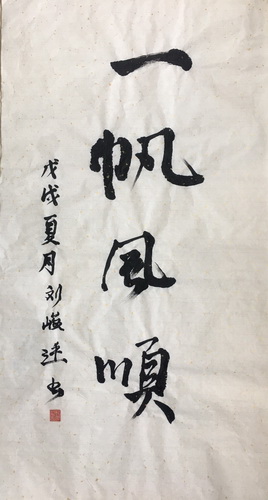 一帆风順
戊戌夏月刘峻逵书